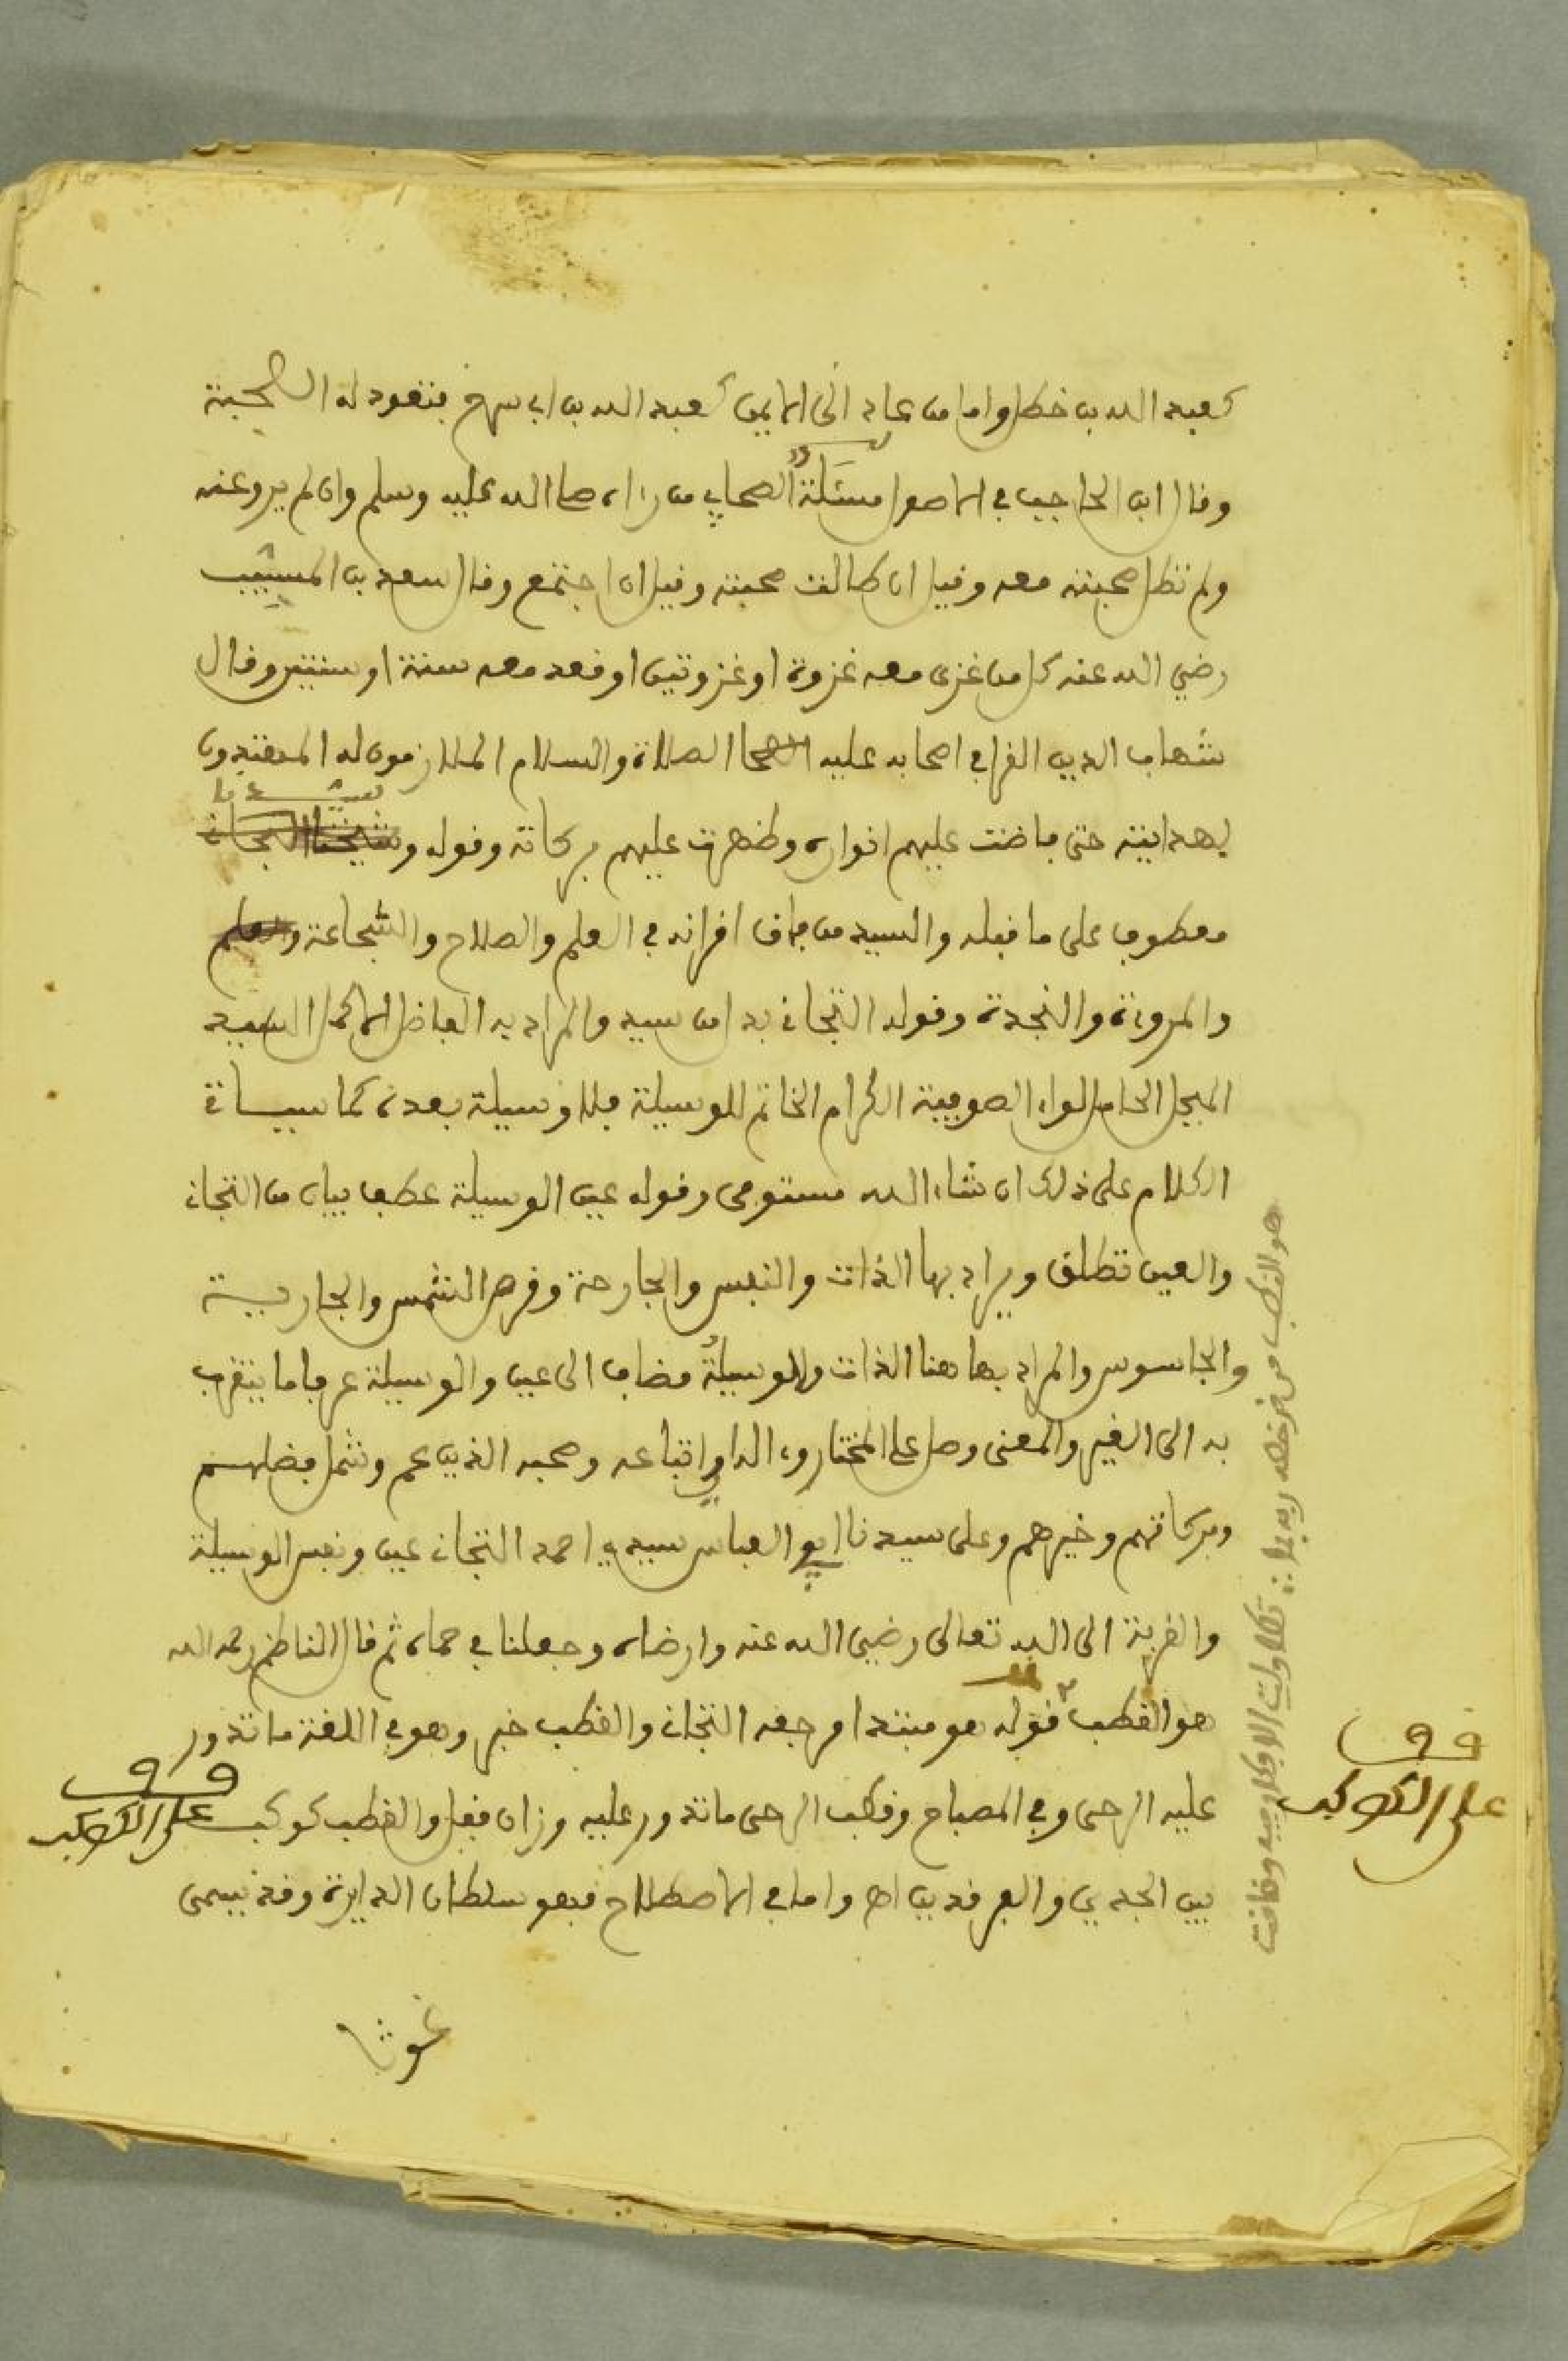 كعبد الله بن خطل واما من عاد الى الايمن كعبد الله بن ابي سرح فتعود له الصحبة
وقال ابن الحاجب في الاصول مسئلة الصحابي من رءاه صلى الله عليه وسلم وان لم يرو عنه
ولم تطل صحبته معه وقيل ان طالت صحبته وقيل ان اجتمع وقال سعد بن المسيب
رضي الله عنه كل من غزى معه غزوة او غزوتين او قعد معه سنة او سنتين وقال
شهاب الدين القرافي اصحابه عليه الصلاة والسلام الملازمون له المهتدون
بهدايته حتى فاضت عليهم انواره وظهرت عليهم بركاته وقوله وسيدنا
معطوف على ما قبله والسيد من فاق اقرانه في العلم والصلاح والشجاعة والحلم
والمروءة والنجدة وقوله التجان بدل من سيد والمراد به الفاضل الاكمل السيد
المبجل الحامل لواء الصوفية الكرام الخاتم للوسيلة فلا وسيلة بعده كما سيات
الكلام على ذلك ان شاء الله مستوفى وقوله عين الوسيلة عطف بيان من التجان
والعين تطلق ويراد بها الذات والنفس والجارحة وقرص الشمس والجارية
والجاسوس والمراد بها هنا الذات والوسيلة مضاف الى عين والوسيلة عرفا ما يتقرب
به الى الغير والمعنى وصل على المختار وءاله اي واتباعه وصحبه الذين عم وشمل فضلهم
وبركاتهم وخيرهم وعلى سيدنا ابي العباس سيدي احمد التجان عين ونفس الوسيلة
والقربة الى الله تعالى رضي الله عنه وارضاه وجعلنا في حماه ثم قال الناظم رحمه الله
هو القطب قوله هو مبتدا مرجعه التجان والقطب خبر وهو في اللغة ما تدور
عليه الرحى وفي المصباح وقطب الرحى ما تدور عليه وزان قفل والقطب كوكب
بين الجدي والفرقدين اه واما في الاصطلاح فهو سلطان الدايرة وقد يسمى
غوثا
وقف
على الكوكب
وقف
على الكوكب